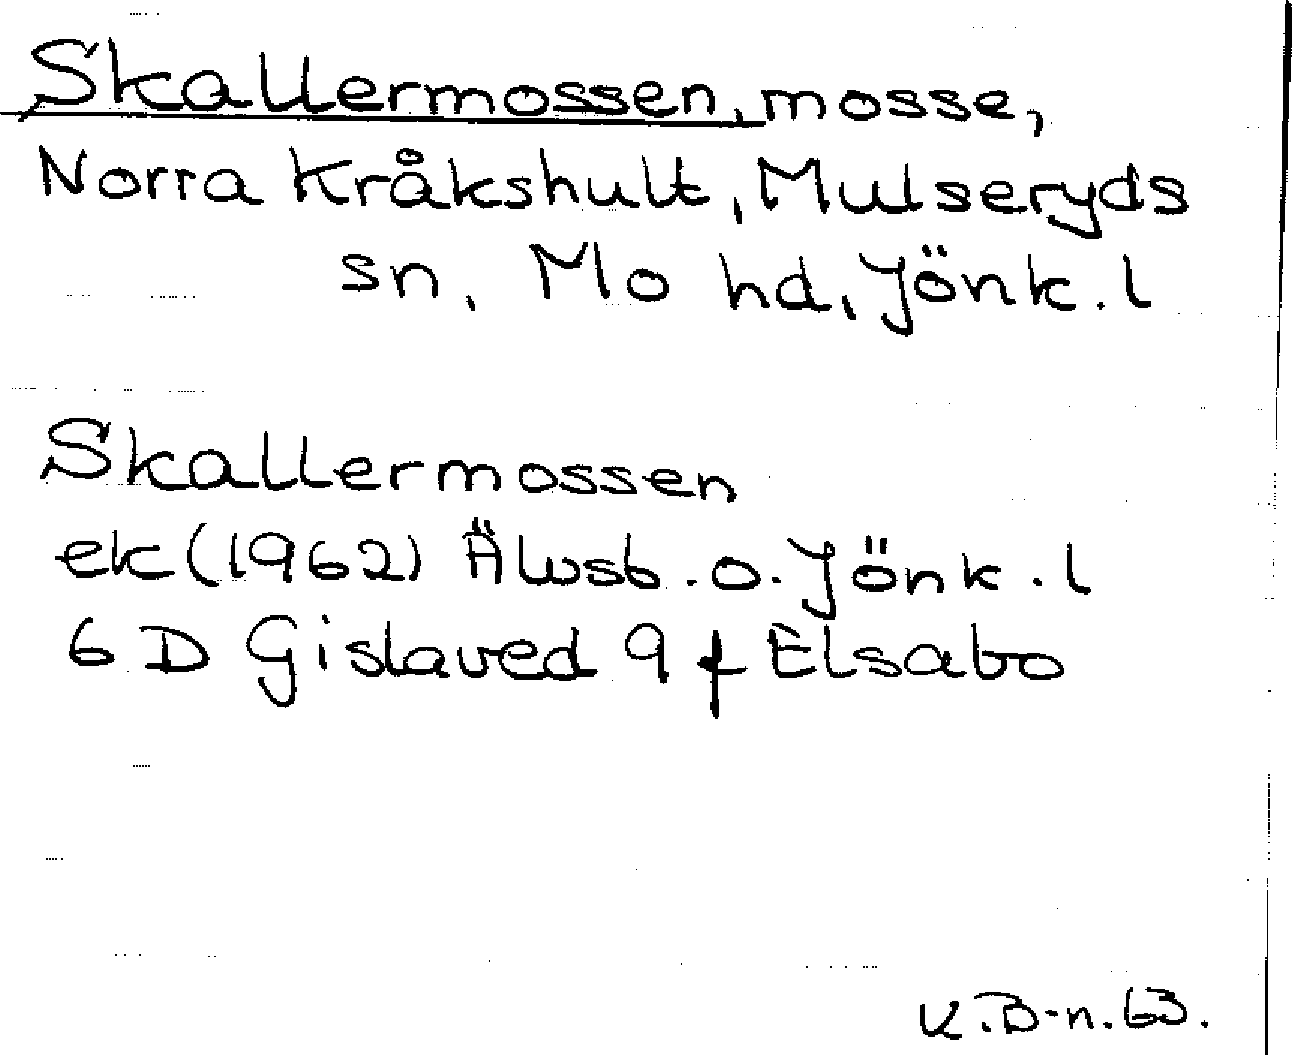 Skallermossen, mosse,
Norra Kråkshult, Mulseryds
sn, Mo hd, Jönk. l
Skallermossen
ek (1962) Älvsb. o. Jönk. l
6 D Gislaved 9 f Elsabo
K. B-n. 63.